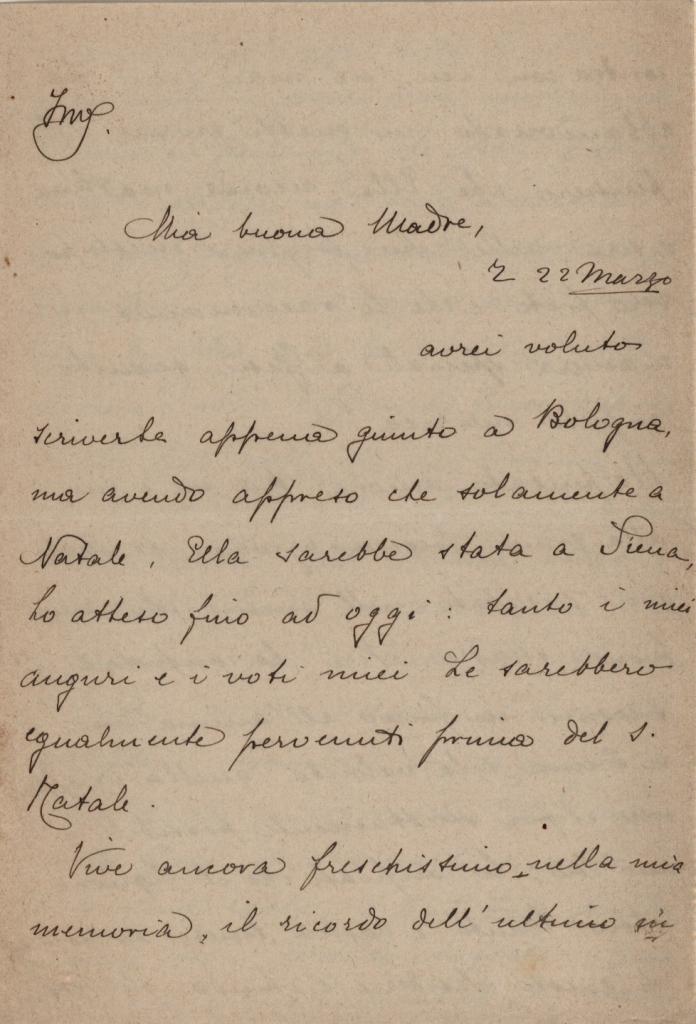 Mia buona Madre,
22 Marzo
avrei voluto
scriverle appena giunto a Bologna,
ma avendo appreso che solamente a
Natale, Ella sarebbe stata a Siena,
ho atteso fino ad oggi: tanto i miei
auguri e i voti miei Le sarebbero
egualmente pervenuti prima del s.
Natale.
Vive ancora freschissimo, nella mia
memoria, il ricordo dell'ultimo